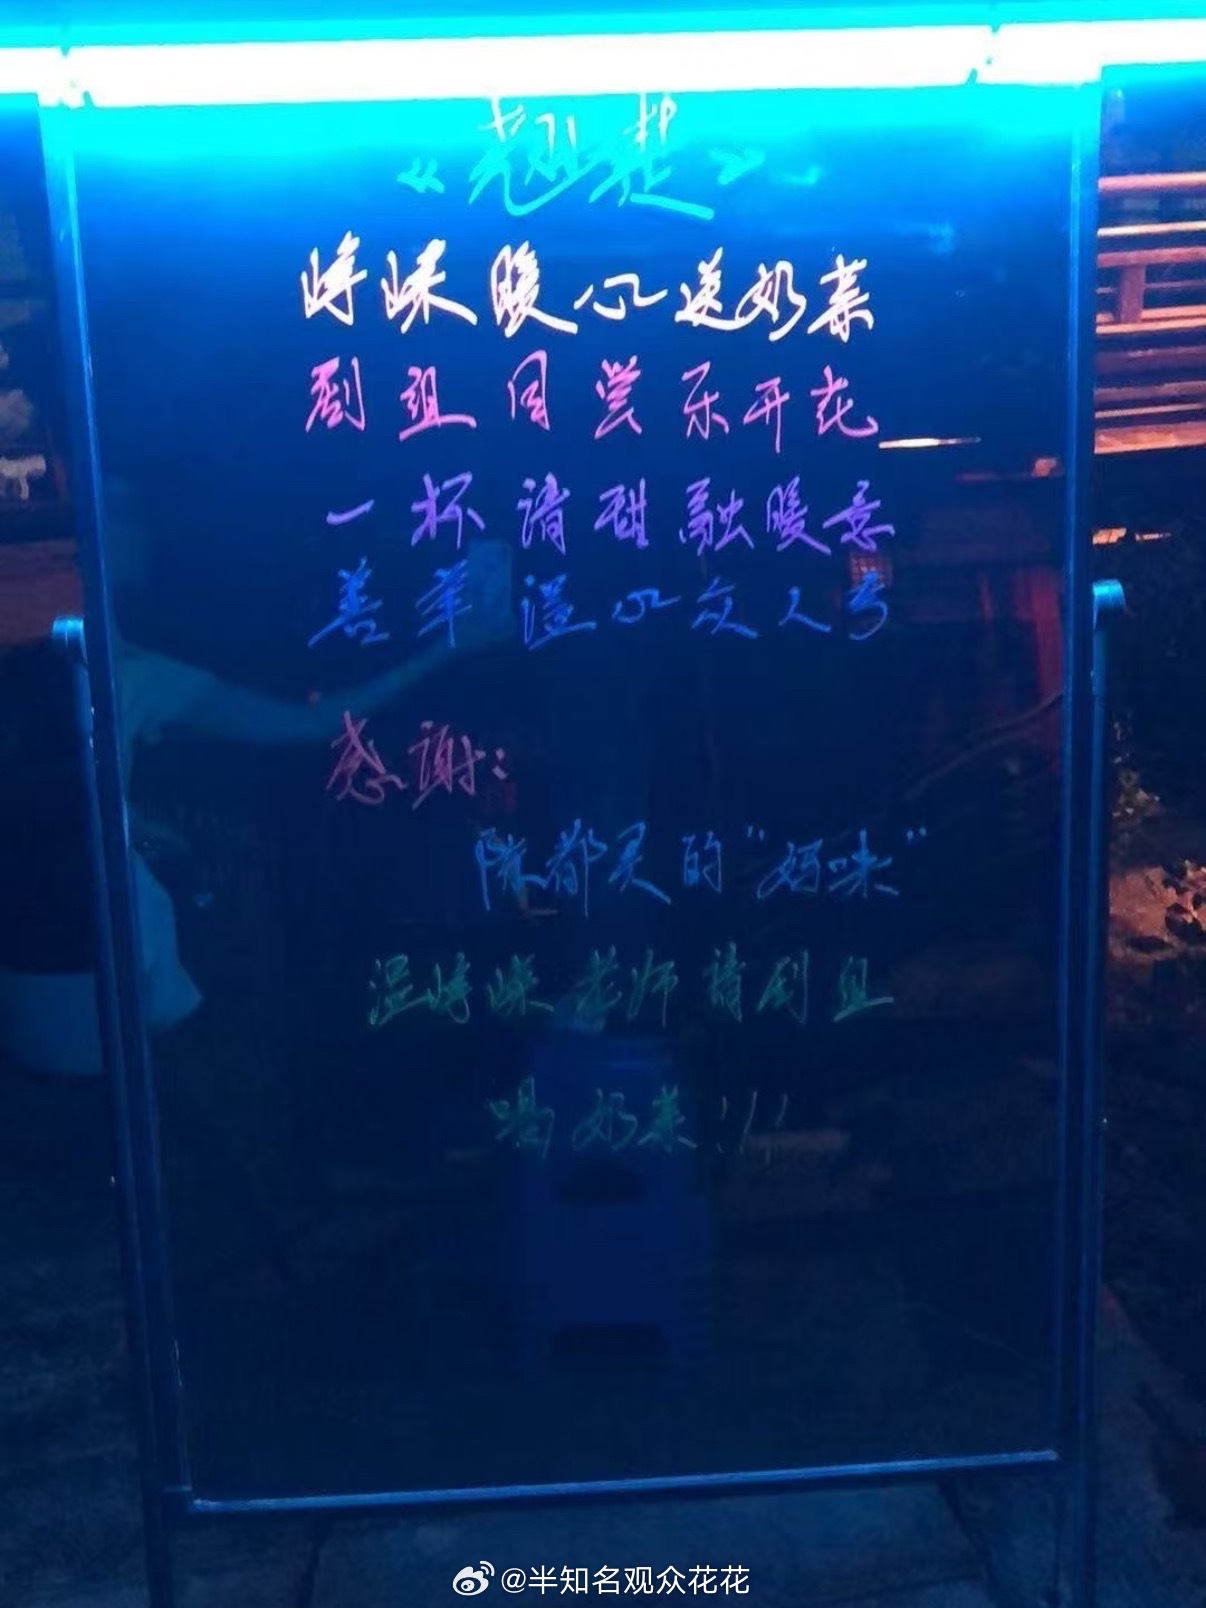 《翘楚》
峙嵘暖心送奶茶
剧组同尝乐开花
一杯清甜融暖意
善举温心众人夸
感谢:
陈都灵的"妈咪"
温峙嵘老师请剧组
喝奶茶!!!
@半知名观众花花